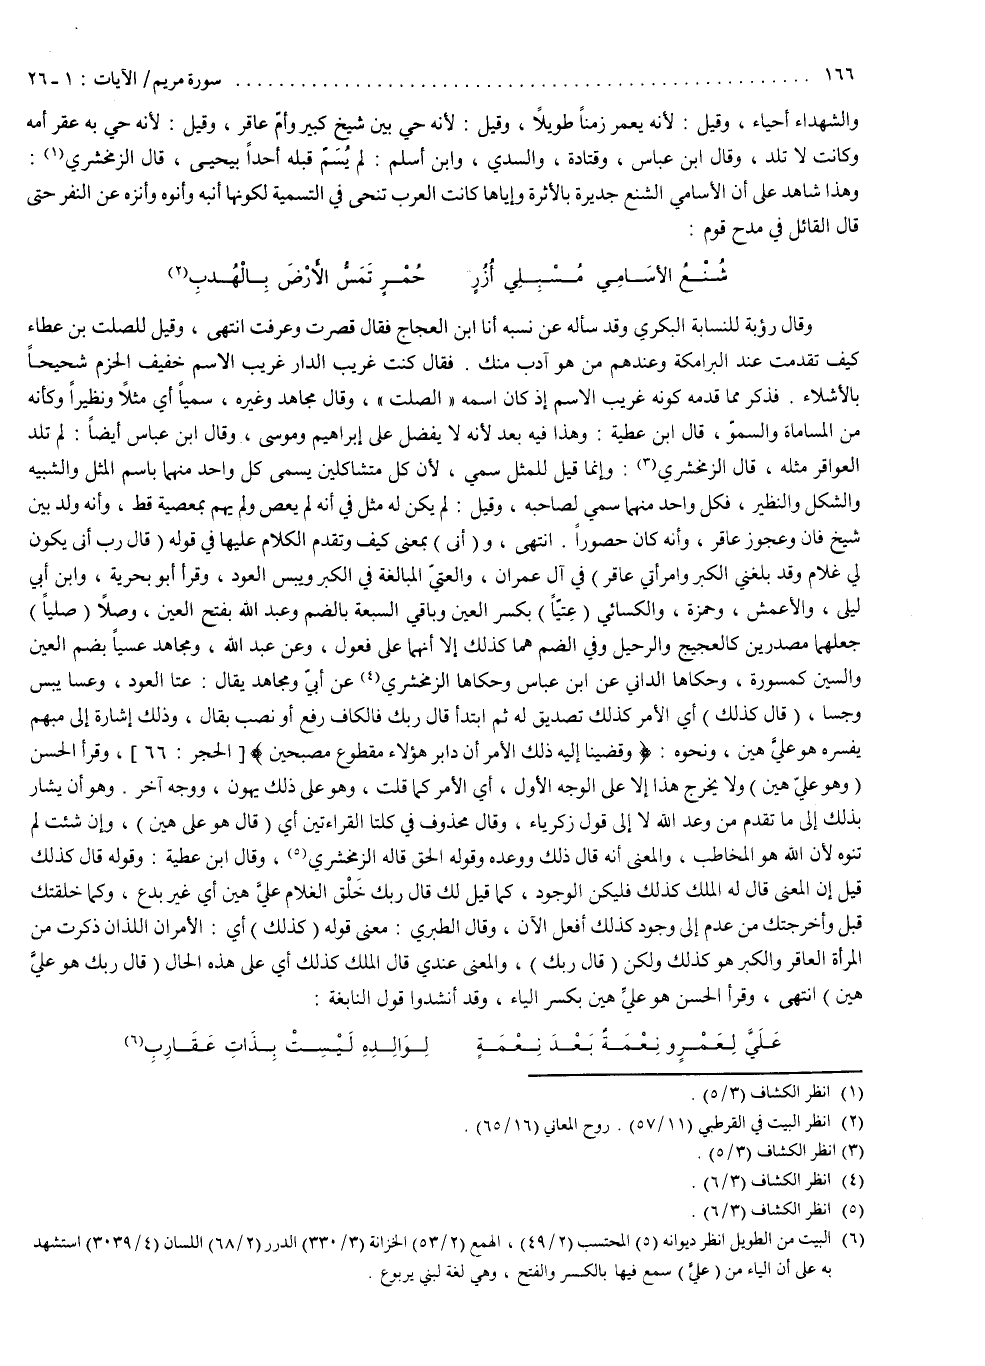 ١٦٦ ........................................................ سورة مريم/ الآيات : ١ ـ ٢٦
والشهداء أحياء ، وقيل : لأنه يعمر زمناً طويلًا ، وقيل : لأنه حي بين شيخ كبير وأمّ عاقر ، وقيل : لأنه حي به عقر أمه
وكانت لا تلد ، وقال ابن عباس ، وقتادة ، والسدي ، وابن أسلم : لم يُسَمّ قبله أحداً بيحيى ، قال الزمخشري(١) :
وهذا شاهد على أن الأسامي الشنع جديرة بالأثرة وإياها كانت العرب تنحى في التسمية لكونها أنبه وأنوه وأنزه عن النفر حتى
قال القائل في مدح قوم :
شُنْعُ الأسَامِي مُسْبِلِي أُزُرٍ حُمْرٍ تَمَسُّ الأَرْضَ بِالْهُدبِ(٢)
وقال رؤبة للنسابة البكري وقد سأله عن نسبه أنا ابن العجاج فقال قصرت وعرفت انتهى ، وقيل للصلت بن عطاء
كيف تقدمت عند البرامكة وعندهم من هو آدب منك . فقال كنت غريب الدار غريب الاسم خفيف الحزم شحيحاً
بالأشلاء . فذكر مما قدمه كونه غريب الاسم إذ كان اسمه « الصلت » ، وقال مجاهد وغيره ، سمياً أي مثلاً ونظيراً وكأنه
من المساماة والسموّ ، قال ابن عطية : وهذا فيه بعد لأنه لا يفضل على إبراهيم وموسى ، وقال ابن عباس أيضاً : لم تلد
العواقر مثله ، قال الزمخشري(٣) : وإنما قيل للمثل سمي ، لأن كل متشاكلين يسمى كل واحد منهما باسم المثل والشبيه
والشكل والنظير ، فكل واحد منهما سمي لصاحبه ، وقيل : لم يكن له مثل في أنه لم يعص ولم يهم بمعصية قط ، وأنه ولد بين
شيخ فان وعجوز عاقر ، وأنه كان حصوراً . انتهى ، و ( أنى ) بمعنى كيف وتقدم الكلام عليها في قوله ( قال رب أنى يكون
لي غلام وقد بلغني الكبر وامرأتي عاقر ) في آل عمران ، والعتيّ المبالغة في الكبر ويبس العود ، وقرأ أبو بحرية ، وابن أبي
ليلى ، والأعمش ، وحمزة ، والكسائي ( عِتيّاً ) بكسر العين وباقي السبعة بالضم وعبد الله بفتح العين ، وصلاً ( صلياً )
جعلهما مصدرين كالعجيج والرحيل وفي الضم هما كذلك إلا أنهما على فعول ، وعن عبد الله ، ومجاهد عسياً بضم العين
والسين كمسورة ، وحكاها الداني عن ابن عباس وحكاها الزمخشري(٤) عن أبيّ ومجاهد يقال : عتا العود ، وعسا يبس
وجسا ، ( قال كذلك ) أي الأمر كذلك تصديق له ثم ابتدأ قال ربك فالكاف رفع أو نصب بقال ، وذلك إشارة إلى مبهم
يفسره هو عليّ هين ، ونحوه : ﴿ وقضينا إليه ذلك الأمر أن دابر هؤلاء مقطوع مصبحين ﴾ [ الحجر : ٦٦ ] ، وقرأ الحسن
( وهو عليّ هين ) ولا يخرج هذا إلا على الوجه الأول ، أي الأمر كما قلت ، وهو على ذلك يهون ، ووجه آخر . وهو أن يشار
بذلك إلى ما تقدم من وعد الله لا إلى قول زكرياء ، وقال محذوف في كلتا القراءتين أي ( قال هو على هين ) ، وإن شئت لم
تنوه لأن الله هو المخاطب ، والمعنى أنه قال ذلك ووعده وقوله الحق قاله الزمخشري(٥) ، وقال ابن عطية : وقوله قال كذلك
قيل إن المعنى قال له الملك كذلك فليكن الوجود ، كما قيل لك قال ربك خَلْق الغلام عليّ هين أي غير بدع ، وكما خلقتك
قبل وأخرجتك من عدم إلى وجود كذلك أفعل الآن ، وقال الطبري : معنى قوله ( كذلك ) أي : الأمران اللذان ذكرت من
المرأة العاقر والكبر هو كذلك ولكن ( قال ربك ) ، والمعنى عندي قال الملك كذلك أي على هذه الحال ( قال ربك هو عليَّ
هين ) انتهى ، وقرأ الحسن هو عليِّ هين بكسر الياء ، وقد أنشدوا قول النابغة :
عَلَيَّ لِعَمْرٍو نِعْمَةٌ بَعْدَ نِعْمَةٍ لِوَالِدِهِ لَيْسِتْ بِذَاتِ عَقَارِبِ(٦)
(١) انظر الكشاف (٥/٣) .
(٢) انظر البيت في القرطبي (٥٧/١١) . روح المعاني (٦٥/١٦) .
(٣) انظر الكشاف (٥/٣) .
(٤) انظر الكشاف (٦/٣) .
(٥) انظر الكشاف (٦/٣) .
(٦) البيت من الطويل انظر ديوانه (٥) المحتسب (٤٩/٢) ، الهمع (٥٣/٢) الخزانة (٣٣٠/٣) الدرر (٦٨/٢) اللسان (٣٠٣٩/٤) استشهد
به على أن الياء من ( عليَّ ) سمع فيها بالكسر والفتح ، وهي لغة لبني يربوع .